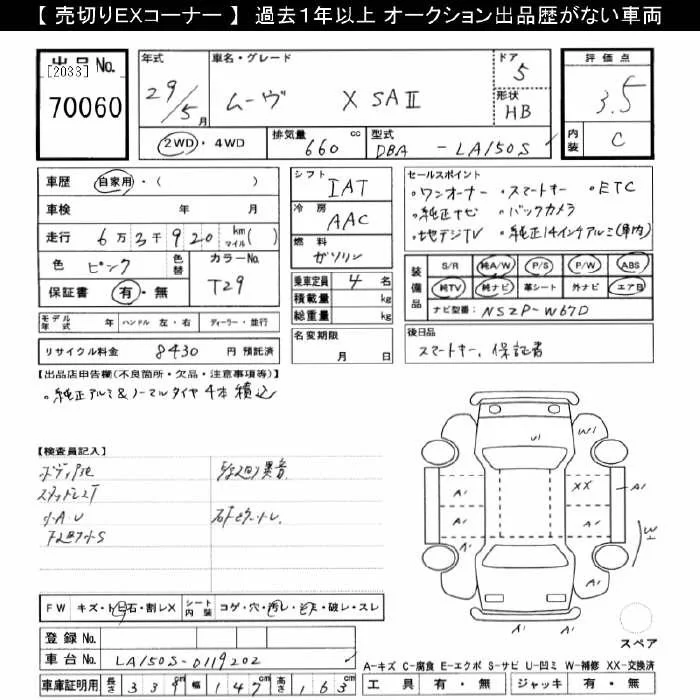 【 売切りEXコーナー 】 過去1年以上 オークション出品歴がない車両
出品No. [2033] 70060
年式 29/5月 車名・グレード ムーヴ X SAⅡ ドア 5 形状 HB
評価点 3.5 内装 C
2WD・4WD 排気量 660 cc 型式 DBA - LA150S
車歴 自家用・( )
車検 年 月
走行 6万3千920 km マイル( )
色 ピンク 色替 カラーNo. T29
保証書 有・無
シフト IAT
冷房 AAC
燃料 ガソリン
乗車定員 4 名
積載量 kg
総重量 kg
名変期限 月 日
セールスポイント
・ワンオーナー ・スマートキー ・ETC
・純正ナビ ・バックカメラ
・地デジTV ・純正14インチアルミ(車内)
装備品 S/R 純A/W P/S P/W ABS
純TV 純ナビ 革シート 外ナビ エアB
ナビ型番: NSZP-W67D
モデル年式 年 ハンドル 左・右 ディーラー・並行
リサイクル料金 8430 円 預託済
後日品
スマートキー、保証書
【出品店申告欄(不良箇所・欠品・注意事項等)】
・純正アルミ&ノーマルタイヤ4本積込
【検査員記入】
異音
FW キズ・ト石・割レX シート内装 コゲ・穴・汚レ・破レ・スレ
登録No.
車台No. LA150S-0119202
車庫証明用 長さ 339cm 幅 147cm 高さ 163cm
U1 W1
A1 XX A1
A1 A1
A1 A1 W1
A1
A1 A1
スペア
A-キズ C-腐食 E-エクボ S-サビ U-凹ミ W-補修 XX-交換済
工具 有・無 ジャッキ 有・無